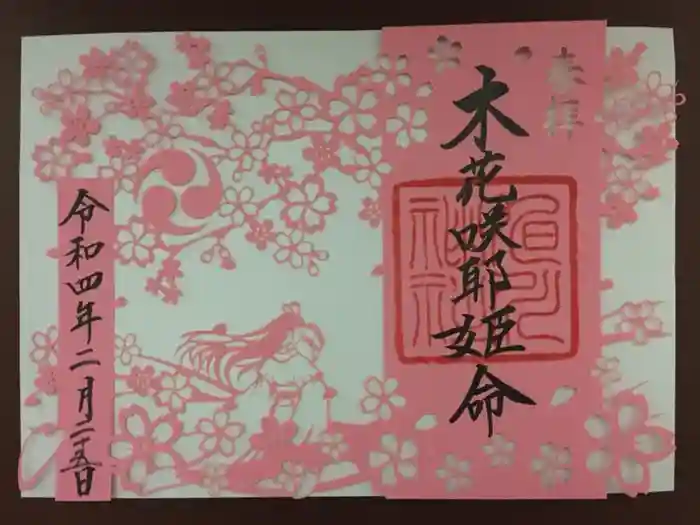 奉拝
木花咲耶姫命
令和四年二月二五日